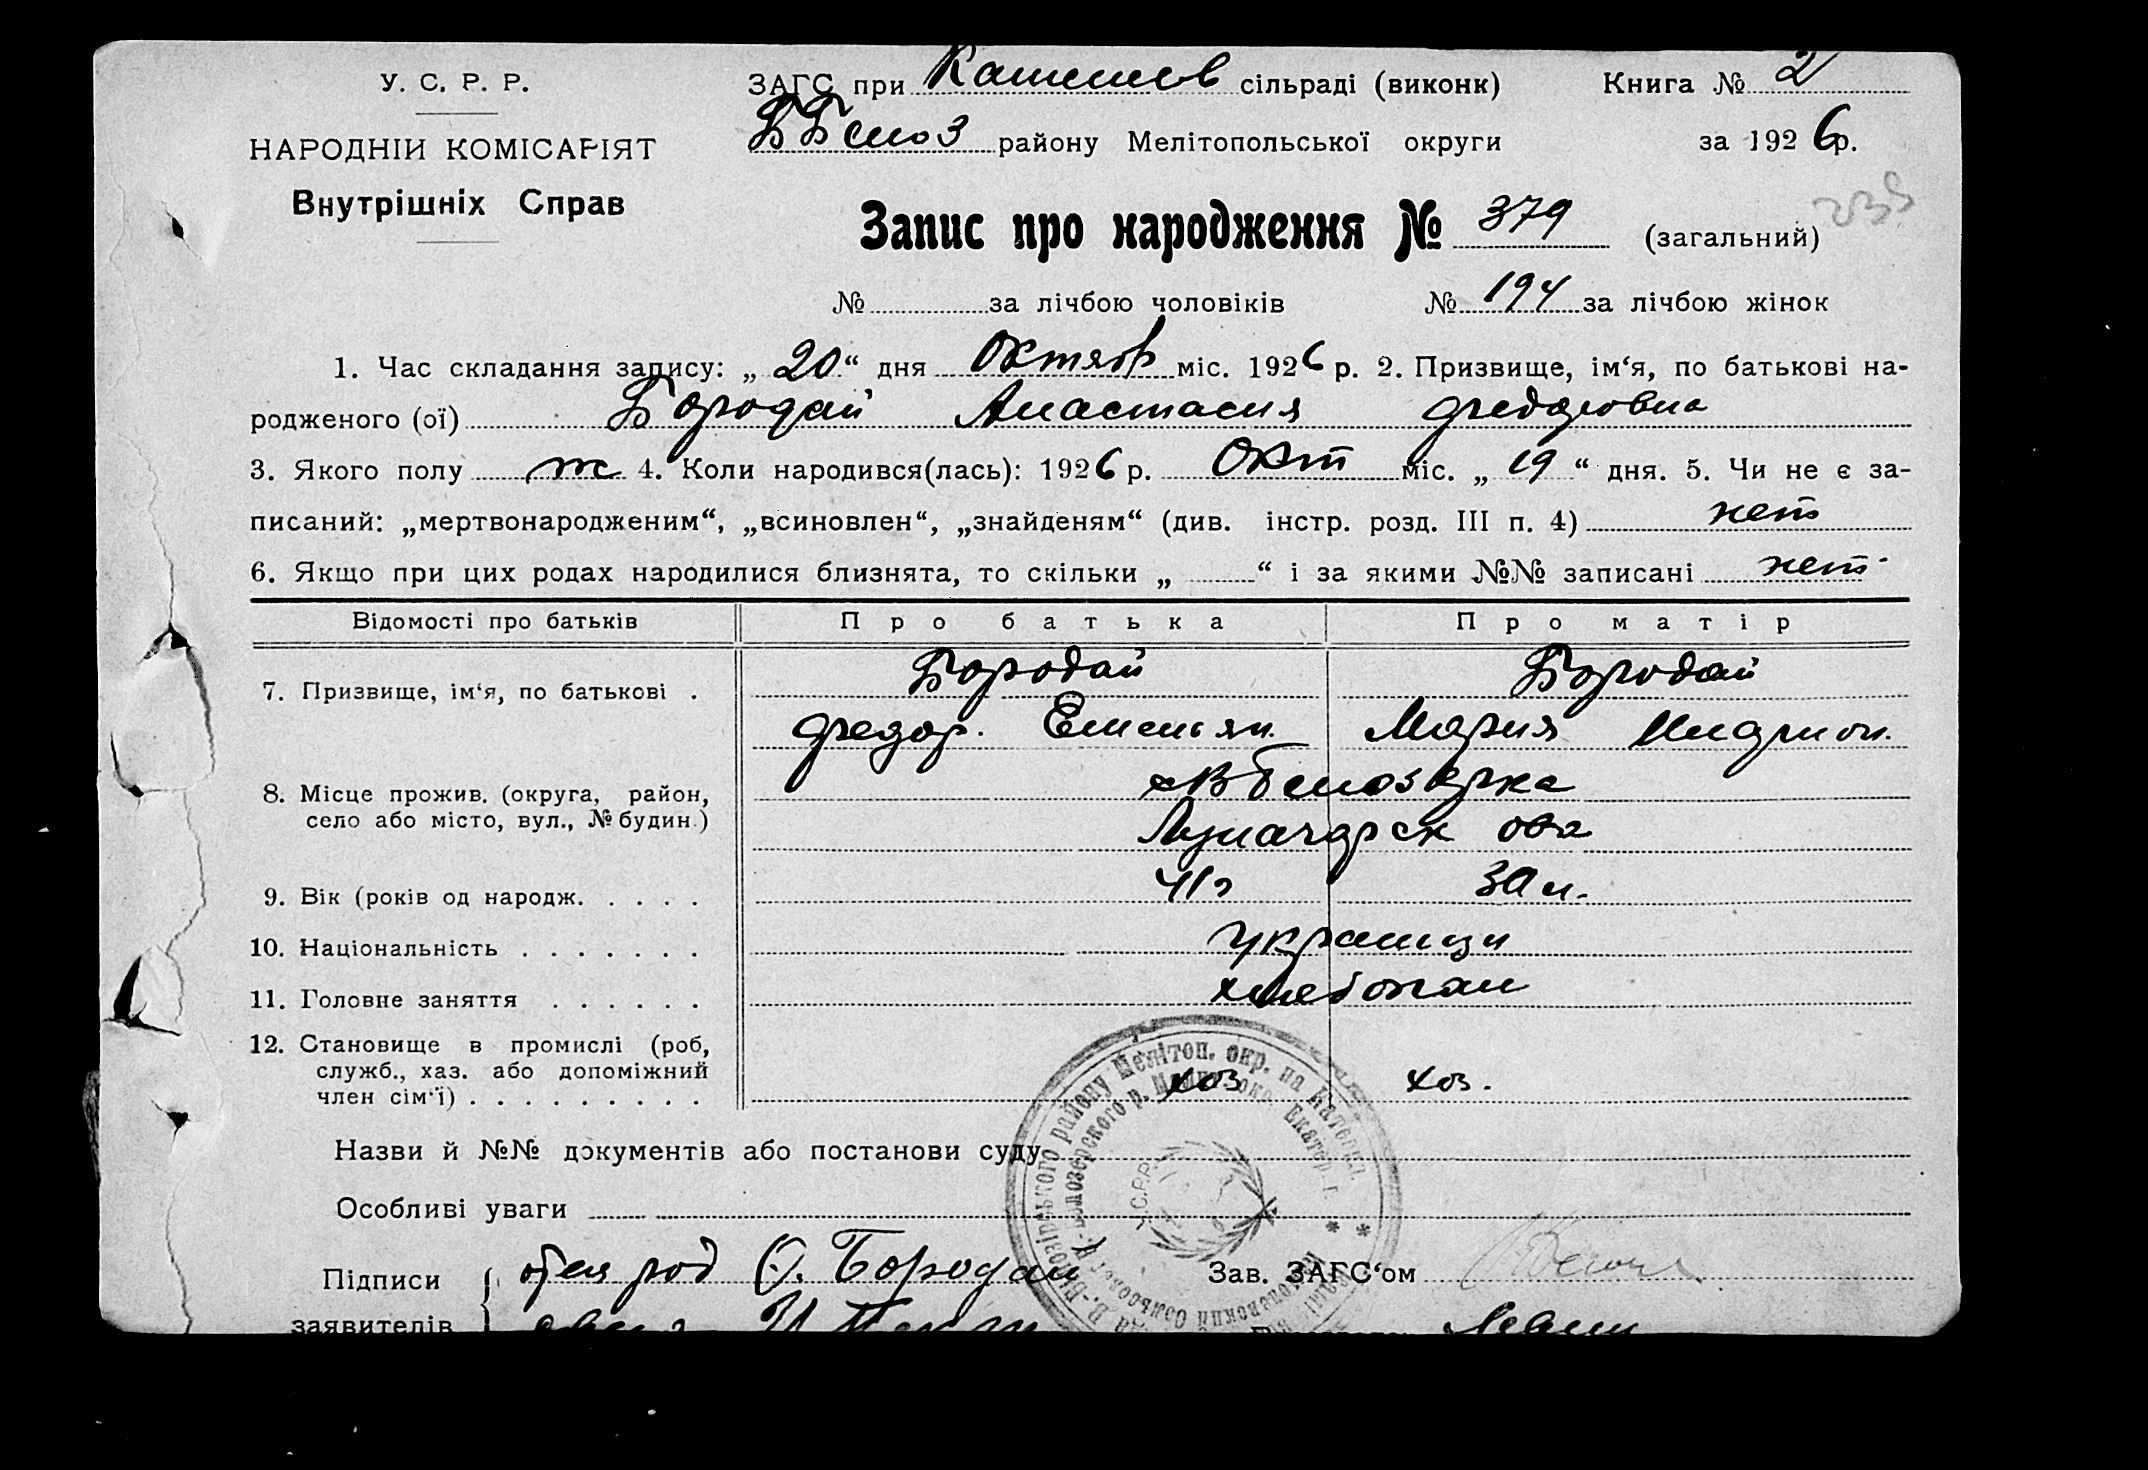 У. С. Р. Р.
НАРОДНІЙ КОМІСАРІЯТ
Внутрішніх Справ
ЗАГС при сільраді (виконк) Книга № 2
району Мелітопольської округи за 1926р.
Запис про народження № 379 (загальний)
№ за лічбою чоловіків № 194 за лічбою жінок
1. Час складання запису: „ 20 “ дня Октяб міс. 1926 р. 2. Призвище, ім‘я, по батькові на-
родженого (ої) Бородай Анастасия Федоровна
3. Якого полу ж 4. Коли народився(лась): 1926 р. Окт міс. „ 19 “ дня. 5. Чи не є за-
писаний: „мертвонародженим“, „всиновлен“, „знайденям“ (див. інстр. розд. III п. 4) нет
6. Якщо при цих родах народилися близнята, то скільки „ “ і за якими №№ записані нет
Відомості про батьків Про батька Про матір
7. Призвище, ім‘я, по батькові . Бородай Бородай
Федор. Емельян. Мария
8. Місце прожив. (округа, район,
село або місто, вул., № будин.)
9. Вік (років од народж. . . . .
10. Національність . . . . . . . украинцы
11. Головне заняття . . . . . . хлебопаш
12. Становище в промислі (роб,
служб., хаз. або допоміжний
член сім‘ї) . . . . . . . . . хоз хоз.
Назви й №№ документів або постанови суду
Особливі уваги
Підписи Бородай Зав. ЗАГС‘ом
заявителів
У.С.Р.Р.